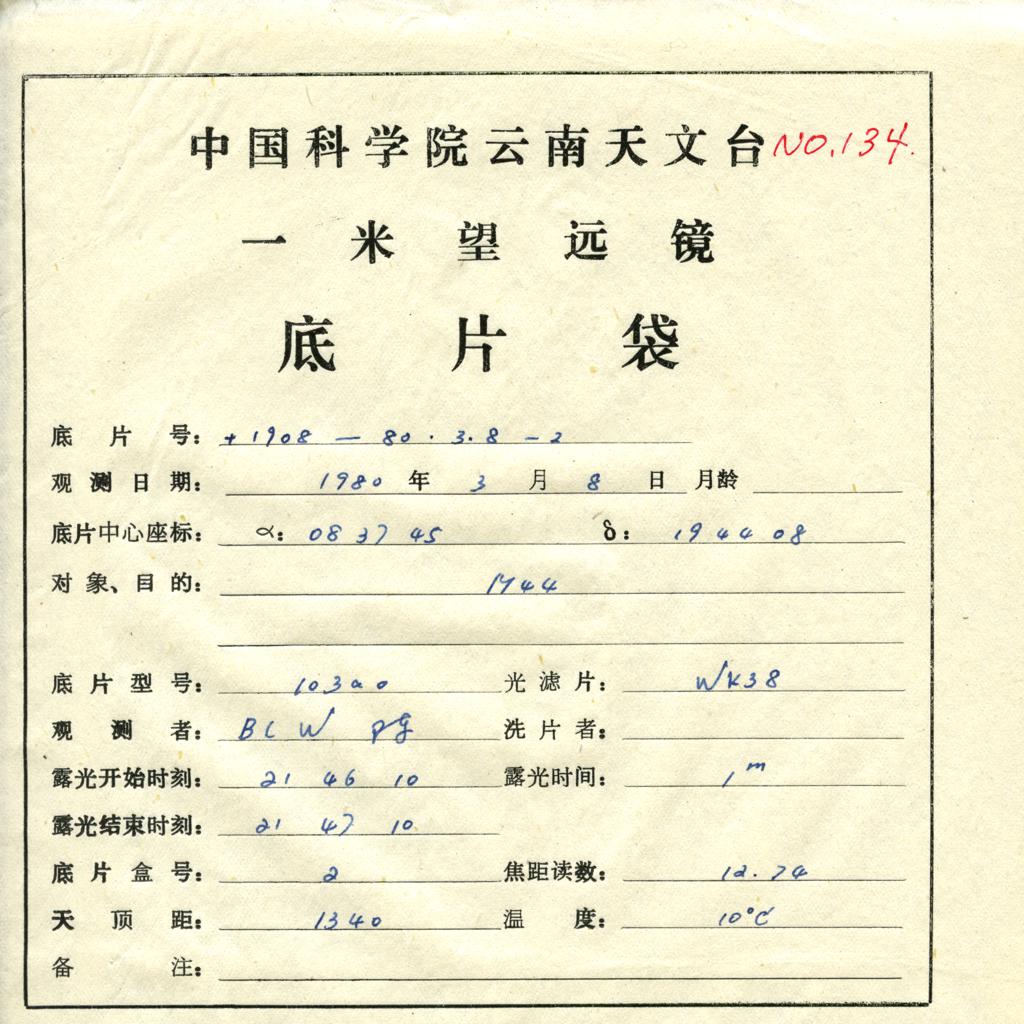 中国科学院云南天文台 NO.134.
一米望远镜
底片袋
底片号: +1908 — 80.3.8 -2
观测日期: 1980 年 3 月 8 日 月龄
底片中心座标: α: 08 37 45 δ: 19 44 08
对象、目的: M44
底片型号: 103a0 光滤片: WK38
观测者: BLW 洗片者:
露光开始时刻: 21 46 10 露光时间: 1m
露光结束时刻: 21 47 10
底片盒号: 2 焦距读数: 12.74
天顶距: 1340 温度: 10°C
备注: